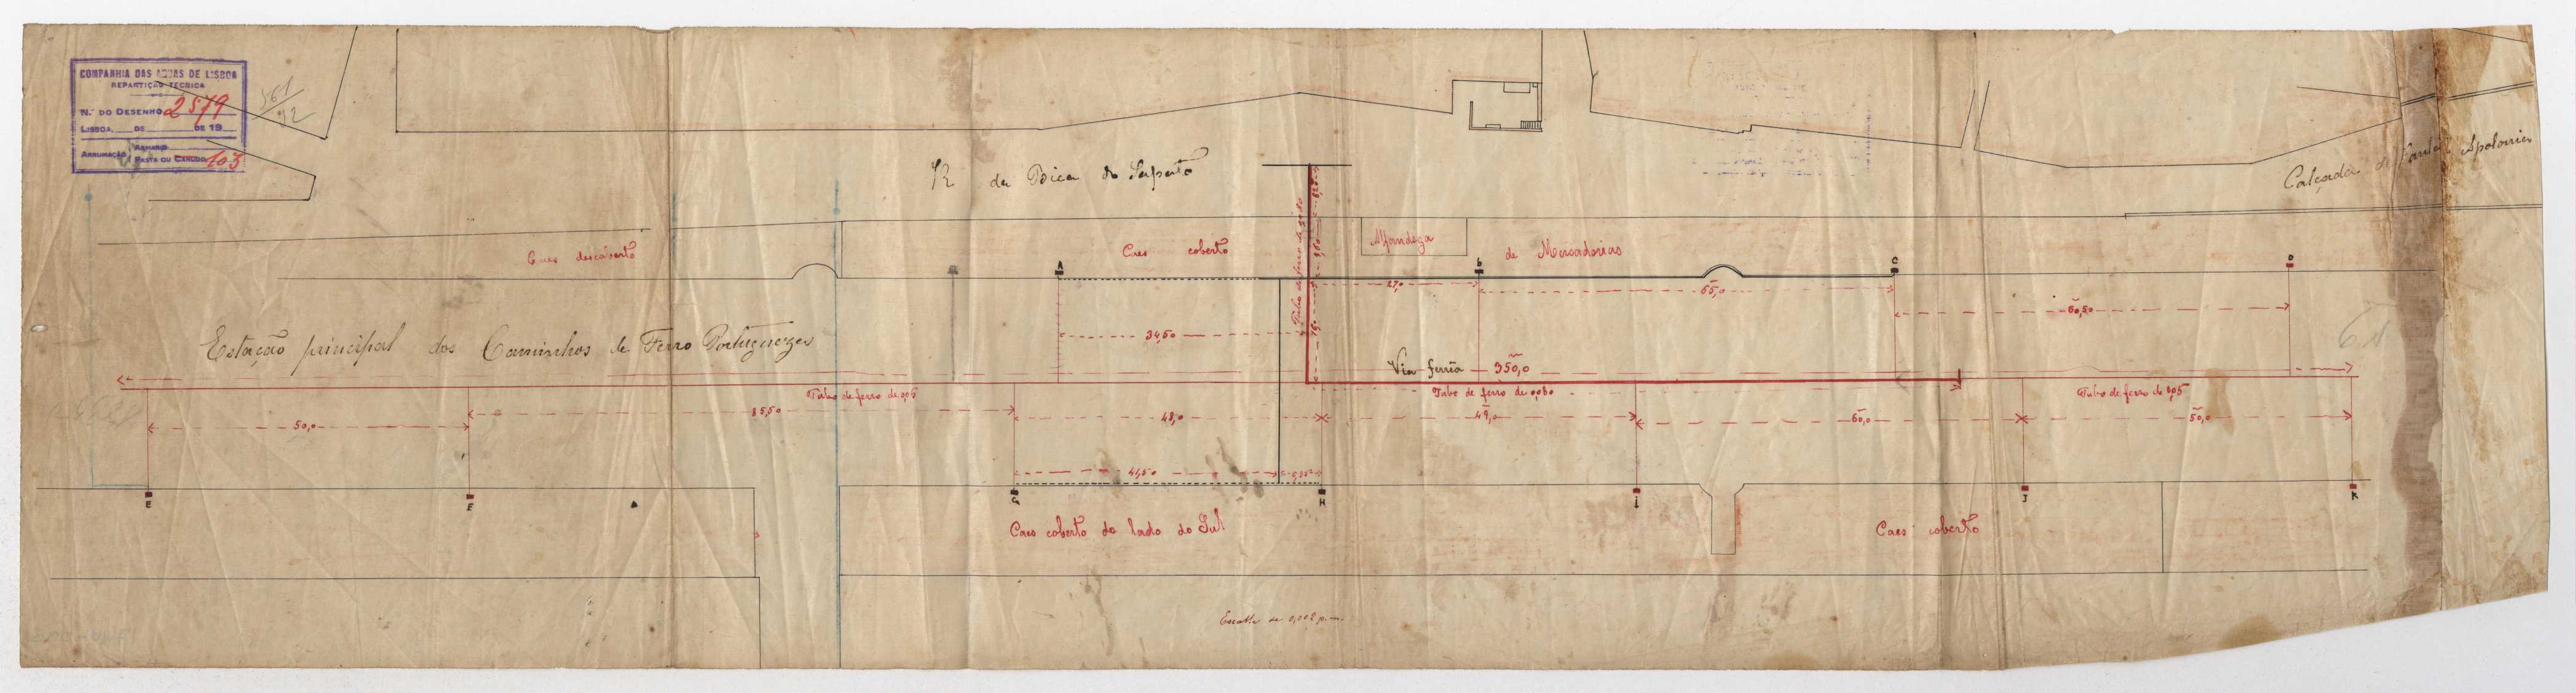 COMPANHIA DAS AGUAS DE LISBOA
REPARTIÇÃO TECNICA
N.º DO DESENHO 2579
LISBOA, DE DE 19
ARRUMAÇÃO ARMARIO
PASTA OU CANUDO 103
561/92
R da Bica do Sapato
Calçada de Santa Apolonia
Caes descoberto
Caes coberto
Alfandega
de Mercadorias
A
b
C
D
27,0
55,0
60,50
34,50
Estação principal dos Caminhos de Ferro Portuguezes
Via ferrea 350,0
Tubo de ferro de 0,05
Tubo de ferro de 0,080
Tubo de ferro de 0,05
50,0
85,50
48,0
49,0
60,0
50,0
41,50
E
F
G
H
I
J
K
Caes coberto do lado do Sul
Caes coberto
Escalla de 0,002 p.m.